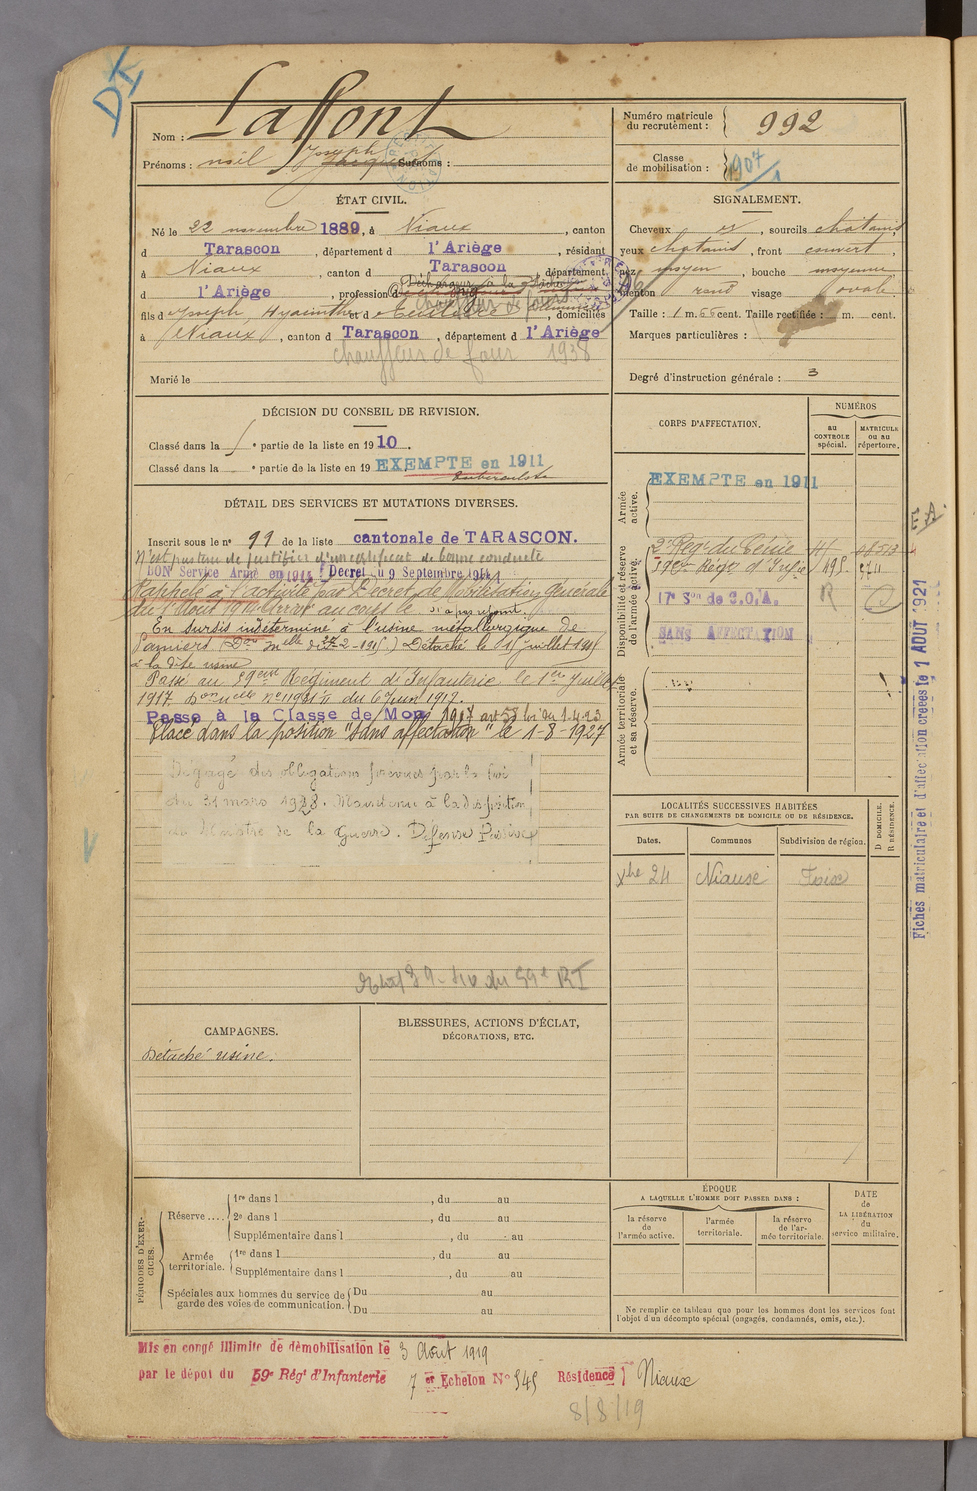 DI
Nom : Laffont
Prénoms : noël Joseph Jacques Surnoms :
Numéro matricule du recrutement : 992
Classe de mobilisation : 1907
ÉTAT CIVIL.
Né le 22 novembre 1889, à Niaux, canton
d Tarascon, département d l'Ariège, résidant
à Niaux, canton d Tarascon, département
d l'Ariège, profession d
chauffeur de fours
fils d Joseph Hyacinthe et d domiciliés
à Niaux, canton d Tarascon, département d l'Ariège
chauffeur de four 1938
Marié le
SIGNALEMENT.
Cheveux , sourcils chatains
yeux chatains, front couvert,
nez moyen, bouche moyenne
menton rond visage ovale
Taille : 1 m. 66 cent. Taille rectifiée : m. cent.
Marques particulières :
Degré d'instruction générale : 3
DÉCISION DU CONSEIL DE REVISION.
Classé dans la partie de la liste en 1910.
Classé dans la e partie de la liste en 19 EXEMPTE en 1911
tuberculose
DÉTAIL DES SERVICES ET MUTATIONS DIVERSES.
Inscrit sous le n° 99 de la liste cantonale de TARASCON.
N'est pas tenu de justifier d'un certificat de bonne conduite
BON Service Armé en 1914 Decret du 9 Septembre 1914
Rappelé à l'activité par Décret de Mobilisation générale
du 1er Aout 1914. Arrivé au corps le n'a pas rejoint.
En sursis indéterminé à l'usine métallurgique de
Pamiers Détaché le 1er juillet 1917
à la dite usine
Passé au 59eme Régiment d'Infanterie le 1er Juillet
1917. Don elle n° 11931 du 6 Juin 1917.
Passe à la Classe de Mob. 1907 art 58 loi du 1.4.23
Placé dans la position "sans affectation" le 1-8-1927
Dégagé des obligations prévues par la loi
du 31 mars 1928. Maintenu à la disposition
du Ministre de la Guerre. Défense Passive
du 59e RI
CORPS D'AFFECTATION.
NUMÉROS
au CONTROLE spécial.
MATRICULE ou au répertoire.
Armée active.
EXEMPTE en 1911
Disponibilité et réserve de l'armée active.
2e Regt du Génie
59e Régt d'Infie
17e Son de C.O.A.
R
SANS AFFECTATION
Armée territoriale et sa réserve.
E A.
Fiches matriculaire et d'affectation créées le 1 AOUT 1921
LOCALITÉS SUCCESSIVES HABITÉES
PAR SUITE DE CHANGEMENTS DE DOMICILE OU DE RÉSIDENCE.
Dates. Communes Subdivision de région. D DOMICILE. R RÉSIDENCE.
Xbre 24 Niause Foix
CAMPAGNES.
Détaché usine.
BLESSURES, ACTIONS D'ÉCLAT,
DÉCORATIONS, ETC.
PÉRIODES D'EXERCICES.
Réserve....
1re dans l , du au
2e dans l , du au
Supplémentaire dans l , du au
Armée territoriale.
1re dans l , du au
Supplémentaire dans l , du au
Spéciales aux hommes du service de garde des voies de communication.
Du au
Du au
ÉPOQUE
A LAQUELLE L'HOMME DOIT PASSER DANS :
la réserve de l'armée active.
l'armée territoriale.
la réserve de l'armée territoriale.
DATE de LA LIBÉRATION du service militaire.
Ne remplir ce tableau que pour les hommes dont les services font
l'objet d'un décompte spécial (engagés, condamnés, omis, etc.).
Mis en congé illimité de démobilisation le 3 Aout 1919
par le dépôt du 59e Régt d'Infanterie 7 er Echelon N° 545 Résidence Niaux
8/8/19